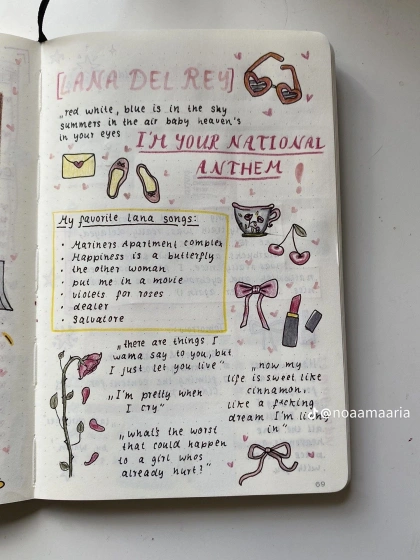 [LANA DEL REY]
„red white, blue is in the sky
summers in the air baby heaven's
in your eyes
I'M YOUR NATIONAL
ANTHEM!
My favorite lana songs:
• Mariners Apartment complex
• Happiness is a butterfly
• the other woman
• put me in a movie
• violets for roses
• dealer
• Salvatore
„there are things I
wama say to you, but
I just let you live"
„I'm pretty when
I cry"
„what's the worst
that could happen
to a girl whos
already hurt?"
„now my
life is sweet like
cinnamon,
like a f*cking
dream I'm
in"
@noaamaaria
69